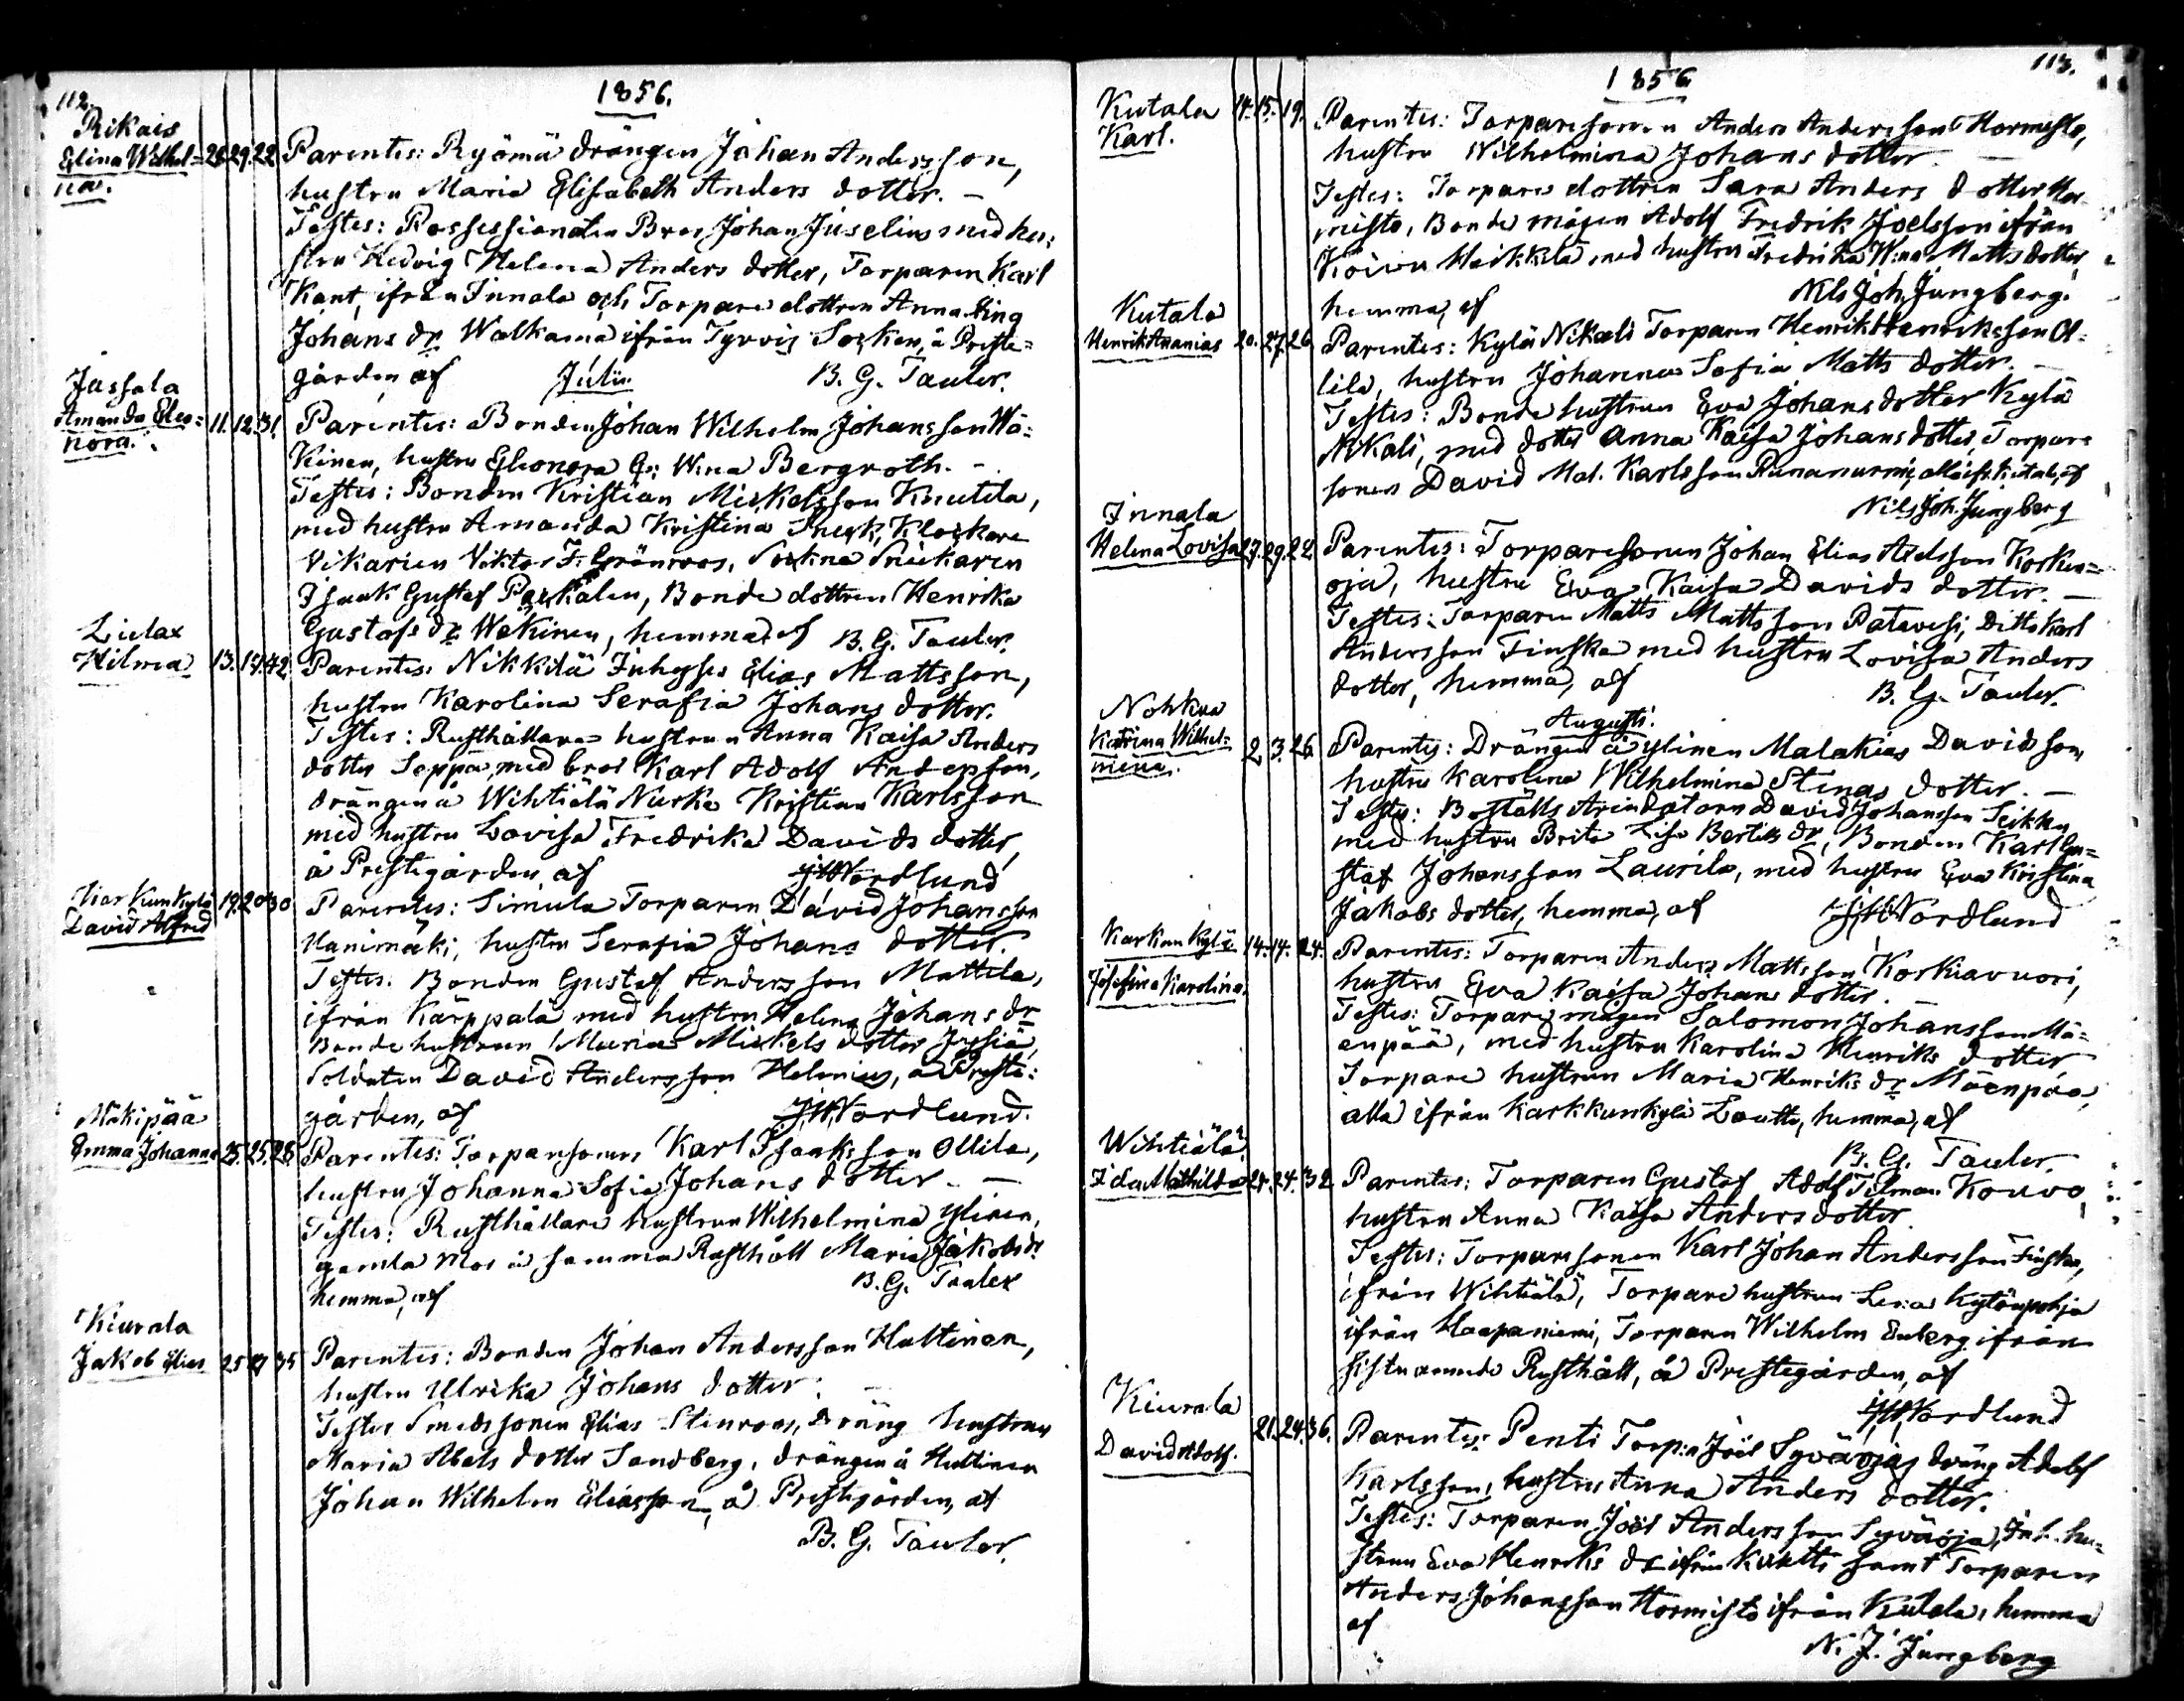 112.
1856.
Rikais
Elina Wilhel=
na.
28. 29. 22
Parentes: Ryömä drängen Johan Andersson,
hustru Maria Elisabeth Anders dotter. –
Testes: Possessionaten Bror Johan Juselius med hu=
stru Hedvig Helena Anders dotter, Torparen Karl
Kant, ifrån Innala och Torpare dottren Anna Stina
Johans dr Walkama ifrån Tyrvis Socken, å Preste=
gården, af
B. G. Tauler.
Julii
Jassala
Amanda Eleo=
nora.
11. 12. 31.
Parentes: Bonden Johan Wilhelm Johansson Wä=
kinen, hustru Eleonora Gs: W:na Bergroth. –
Testes: Bonden Kristian Mickelsson Knutila,
med hustru Amanda Kristina Klockare
Vikarien Viktor F. Grönroos, Sockne Snickaren
Isaak Gustaf Packalen, Bonde dottren Henrika
Gustafs dr Wekinen, hemma, af B. G. Tauler.
Liulax
Hilma
13. 14. 42
Parentes: Nikkilä Inhyses Elias Mattsson,
hustru Karolina Serafia Johans dotter.
Testes: Rusthållare hustrun Anna Kaisa Anders
dotter Seppä, med bror Karl Adolf Andersson,
drängen å Wihtiälä Nuska Kristian Karlsson
med hustru Lovisa Fredrika Davids dotter,
å Prestegården, af
JWNordlund
Karkunkylä
David Alfred
19. 20. 30
Parentes: Simula Torparen David Johansson
Hanimäki, hustru Serafia Johans dotter.
Testes: Bonden Gustaf Andersson Mattila,
ifrån Kärppälä med hustru Helena Johans dr
Bonde hustrun Maria Mickels dotter Jussia,
Soldaten David Andersson Helenius, å Preste=
gården, af
JWNordlund.
Mäkipää
Emma Johanna
25. 25. 28.
Parentes: Torparsonen Karl Isaaksson Ollila,
hustru Johanna Sofia Johans dotter. –
Testes: Rusthållare hustrun Wilhelmina Ylinen,
gamla Mor å samma Rusthåll Maria Jakobs dr
hemma, af
B. G. Tauler
Kiurala
Jakob Elias
25 27 35
Parentes: Bonden Johan Andersson Huttinen,
hustru Ulrika Johans dotter. –
Testes Smedssonen Elias Stenroos, Dräng hustrun
Maria Abels dotter Sandberg, drängen å Huttinen
Johan Wilhelm Eliasson, å Prestegården, af
B. G. Tauler.
1856
113.
Kutala
Karl.
14. 15. 19.
Parentes: Torparesonen Anders Andersson Hormesto,
hustru Wilhelmina Johans dotter. –
Testes: Torpare dottren Sara Anders dotter Hor=
misto, Bonde mågen Adolf Fredrik Joelsson ifrån
Koivu Heikkilä med hustru Fredrika W:na Matts dotter,
hemma, af
Nils Joh. Jungberg.
Kutala
Henrik Ananias
20. 27. 26
Parentes: Kylä Nikali Torparen Henrik Henriksson Ol=
lila, hustru Johanna Sofia Matts dotter. –
Testes: Bonde hustrun Eva Johans dotter Kylä
Nikali, med dotter Anna Kaisa Johans dotter, Torpare
sonen David Mal. Karlsson Runanurmi, alla ifr. Kutala, af
Nils Joh. Jungberg
Innala
Helena Lovisa
27. 29. 22
Parentes: Torparesonen Johan Elias Axelsson Korken=
oja, hustru Eva Kaisa Davids dotter. –
Testes: Torparen Matts Mattsson Patavesi, Ditto Karl
Andersson Finska med hustru Lovisa Anders
dotter, hemma, af
B. G. Tauler.
Augusti.
Nohkua
Katrina Wilhel=
mina.
2 3. 26
Parentes: Drängen å Ylinen Malakias Davidsson,
hustru Karolina Wilhelmina Stinas dotter. –
Testes: Boställs Arendatorn David Johansson Seikku
med hustru Brita Lisa Bertils dr, Bonden Karl Gu=
staf Johansson Laurila, med hustru Eva Kristina
Jakobs dotter, hemma, af
JWNordlund
Karkunkylä
Josefina Karolina.
14. 14. 24.
Parentes: Torparen Anders Mattsson Korkiavuori,
hustru Eva Kaisa Johans dotter. –
Testes: Torpare mågen Salomon Johansson Mä=
enpää, med hustru Karolina Henriks dotter
Torpare hustrun Maria Henriks dr Mäenpää,
alla ifrån Karkkunkylä Lautto, hemma, af
B. G. Tauler.
Wihtiälä
Ida Mathilda
24. 24. 32
Parentes: Torparen Gustaf Adolf Tilman Kouvo,
hustru Anna Kaisa Anders dotter.
Testes: Torparesonen Karl Johan Andersson Finska,
ifrån Wihtiälä, Torpare hustrun Lena Kytönpohja
ifrån Haapaniemi, Torparen Wilhelm Enberg ifrån
sistnämnde Rusthåll, å Prestegården, af
JWNordlund
Kiurala
David Adolf.
21. 24. 36.
Parentes: Penti Torp:n Joel Syväoja dräng Adolf
Karlsson, hustru Anna Anders dotter.
Testes: Torparen Joel Andersson Syväoja, Inh. hu=
strun Eva Henriks dr ifrån samt Torparen
Anders Johansson Hormisto ifrån Kutala, hemma
af
N. J. Jungberg